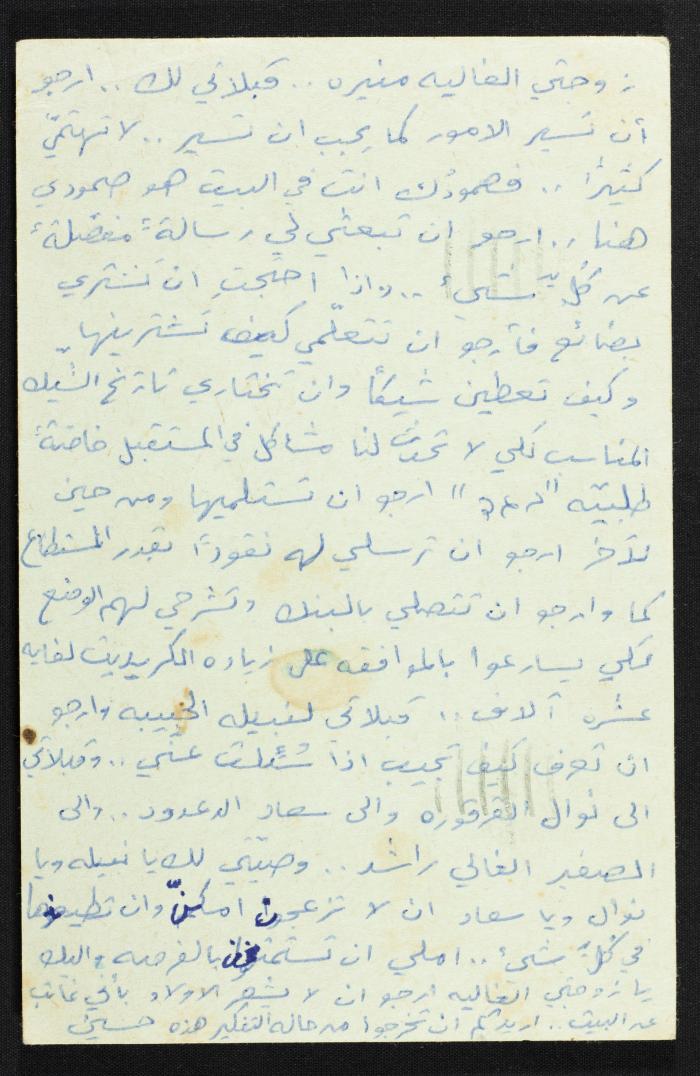 زوجتي الغاليه منيره .. قبلاتي لك .. ارجو
أن تسير الامور كما يجب ان تسير .. لا تهتمّي
كثيرًا .. فصمودُك انت في البيت هو صمودي
هنا .. ارجو ان تبعثي لي رسالةً مفصّلةً
عن كُلِ شيء .. واذا احتجتِ ان تشتري
بضائع فأرجو ان تتعلّمي كيف تشترينها
وكيف تعطين شيكًا وان تختاري تاريخ الشيك
المناسب لكي لا تحدث لنا مشاكل في المستقبل خاصّةً
طلبيّه " " ارجو ان تستلميها ومن حين
لآخر ارجو ان ترسلي له نقودًا بقدر المستطاع
كما وارجو ان تتصلي بالبنك وتشرحي لهم الوضع
لكي يسارعوا بالموافقه على زياده الكريديت لغايه
عشره آلاف .. قبلاتي لنبيله الحبيبه وارجو
ان تعرف كيف تجيب اذا سُئلت عنّي .. وقبلاتي
الى نوال القرقوره والى سعاد الدعدود .. والى
الصغير الغالي راشد .. وصيّتي لك يا نبيله ويا
نوال ويا سعاد ان لا تزعجن امكنّ وان تطيعنها
في كُلّ شيء .. املي ان تستمتعن بالفرصه واليك
يا زوجتي الغاليه ارجو ان لا تشعر الاولاد بأني غائب
عن البيت .. اريدكم ان تخرجوا من حاله التفكير هذه حسين